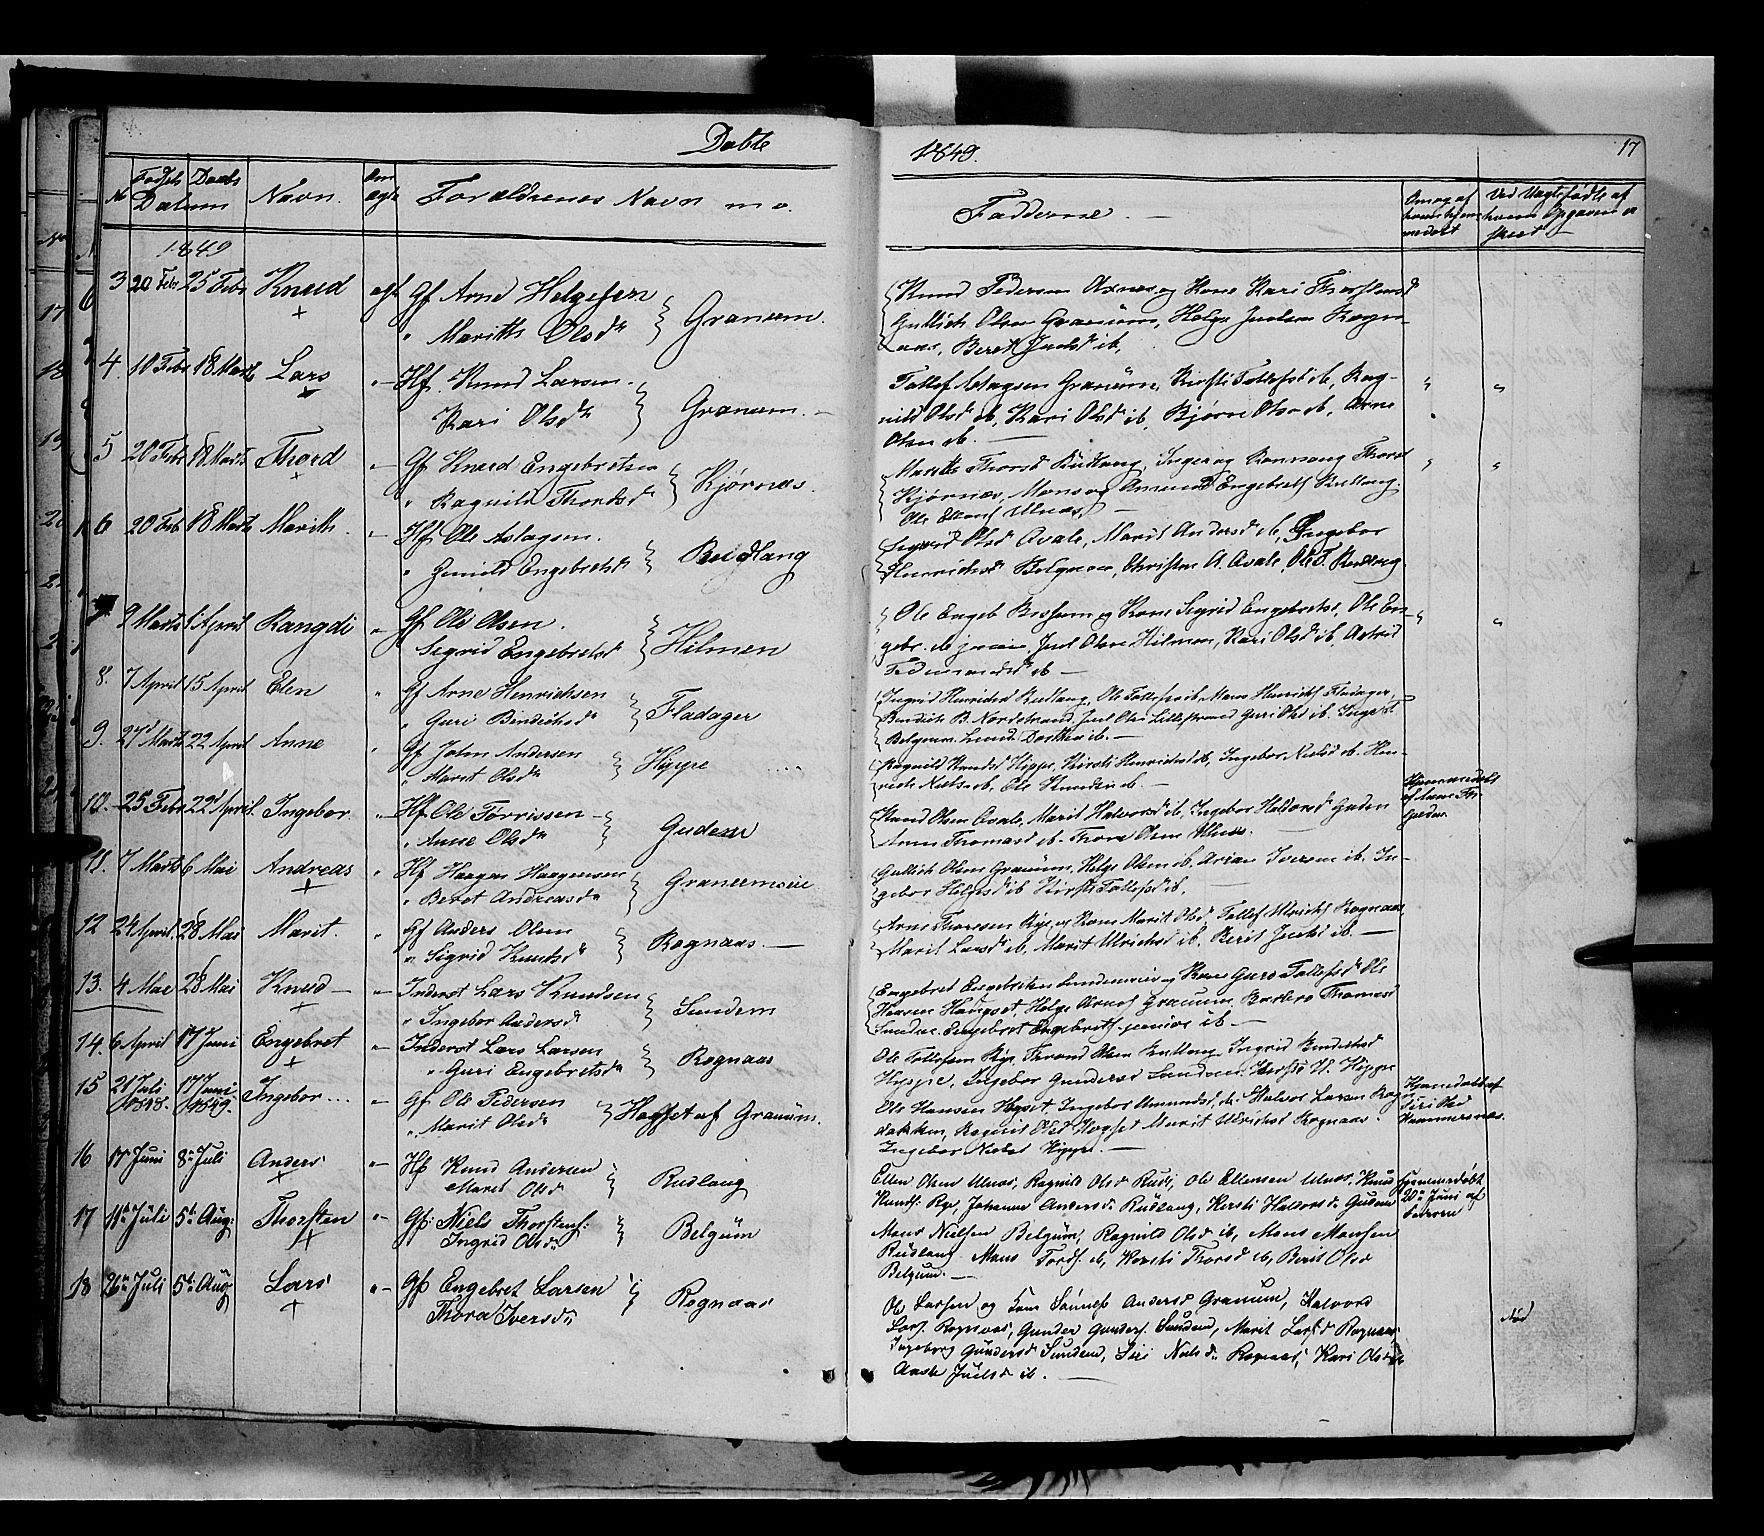 Døbte
1849.
17
No Fødsels Daabs Datum Navn. Om ægte Forældrenes Navn m.v.
Faddernes. —
1849
3 20 Febr 25 Febr Knud ægt Gf Arne Helgesen
" Marith Olsdr Granum.
Knud Pedersen og Kone Kari Thorstensd
Gullich Olsen Granum, Helge Juelsen Rogn-
aas, Beret Juelsd ib,
4. 10 Febr 18 Marts Lars "- Hf. Knud Larsen
Kari Olsdr Granum. —
Tollef Aslagsen Granum, Kirsti Tollefsd ib, Rag-
nild Olsd ib, Kari Olsd ib, Bjørn Olsen ib, Arne
Olsen ib. —
5 20 Febr 18 Marts Thord "- Gf Knud Engebretsen
" Ragnild Thordsdr Kjørnæs.
Marith Thorsd Rudlang, Inger og Rannaug Thorsd
Kjørnæs, Mons og Amund Engebretss Rudlang.
Ole Ellens Ulnæs, —
6 20 Feb 18 Marts Marith. "- Hf Ole Aslagsen.
" Gunild Engebretsdr Rudlang
Sigrid Olsd Avale, Marit Andersd ib, Ingebor
Henrichsd Belgum, Christen A. Avale, Ole T. Rudlang
7 9 Marts 1 April Rangdi " Gf Ole Olsen.
Sigrid Engebretsd Hilmen
Ole Engeb og Kone Sigrid Engebretsd, Ole En-
gebr. ib junior, Juel Olsen Hilmen, Kari Olsd ib, Astrid
ib —
8. 7 April 15 April Elen " Gf Arne Henrichsen
" Guri Bendichsdr Fladager
Ingrid Henrichsd Rudlang, Ole Tollefsen ib, Mons Henrichs Fladager,
Bendich B. Nordstrand, Juel Ols Lillestrand Guri Olsd ib, Ingebr
Belgum. ib. —
9. 27 Marts 22 April Anne " Gf John Andersen
" Marit Olsdr Hippe
Ragnild Knudsd Hippe, Kirsti Henrichsd ib, Ingebor Nielsd ib. Hen-
rich Niels ib, Ole Knudsen ib. —
10. 25 Febr 22 April. Ingebor. "- Hf Ole Torrissen —
" Anne Olsdr Gudem
Knud Olsen Avale, Marit Halvorsd ib, Ingebor Haldorsd Gudem
Anne Thomasd ib. Thore Olsen Ulnæs.
Hjemmedøbt
af
Gudem
11. 7 Marts 6 Mai Andreas " Hf Haagen Haagensen
" Beret Andreasdr Granumseie
Gullich Olsen Granum, Helge Olsen ib, Arian Iversen ib. In-
gebor Helgesd ib Kirsti Tollefsd ib.
12 24 April 28 Mai Marit. " Gf Anders Olsen
" Sigrid Knudsdr Rognaas. —
Arne Thoresen Rye og Kone Marit Olsd, Tollef Ulrichs Rognaas,
Marit Larsd ib, Marit Ulrichsd ib, Berit Juelsd ib. —
13. 4 Mai 28 Mai Knud — "- Inderst Lars Knudsen
" Ingebor Andersdr Sundem
Engebret Engebretsen Sundemseie og Kone Guro Tollefsd Ole
Hansen Haugset, Helge Arnes Granum, Barbro Thomasd
Sundem. Engebret Engebrets. junior ib —
14. 6 April 17 Juni Engebret "- Inderst Lars Larsen
" Guri Engebretsdr Rognaas
Ole Tollefsen Rye, Thrond Olsen Rudlang, Ingrid Bendichsd
Hippe, Ingebor Gundersd Sundem, Kirsti H. Hippe
15 21 Juli 1848. 17 Juni 1849. Ingebor... "- Gf Ole Pedersen
". Marit Olsdr Høgset af Granum.
Ole Hansen Høgset, Ingebor Amundsd, ib. Halvor Larsen Rogn
dokken, Ragnil Olsd Høgset Marit Ulrichsd Rognaas.
Ingebor Nielsd Hippe. —
Hjemmedøbt af
Siri Olsd
16 17 Juni 8de Juli Anders "- Hf Knud Andersen
Marit Olsd Rudlang
Ellen Olsen Ulnæs, Ragnild Olsd Rud, Ole Ellensen Ulnæs, Knud
Knuds. Rye, Johanne Andersdr Rudlang, Kersti Haldorsdr Gudem
Hjemmedøbt
20de Juni af
Faderen
17 11te Juli 5te Aug: Thorsten "- Gf. Niels Thorstens:
Ingrid Olsdr Belgum
Mons Nielsen Belgum, Ragnild Olsd ib, Mons Monsen
Rudlang. Mons Tords. ib, Kersti Thorsd ib, Berit Olsd
Belgum. —
18 26de Juli 5te Aug Lars "- Gf Engebret Larsen
Thora Iversdr Rognaas
Ole Larsen og Kone Sønnev Andersd Granum, Halvord
Lars. Rognaas, Gunder Gunders. Sundem, Marit Larsd Rognaas
Ingeborg Gundersd Sundem, Siri Nielsdr Rognaas, Kari Olsd ib
Juelsd ib. —